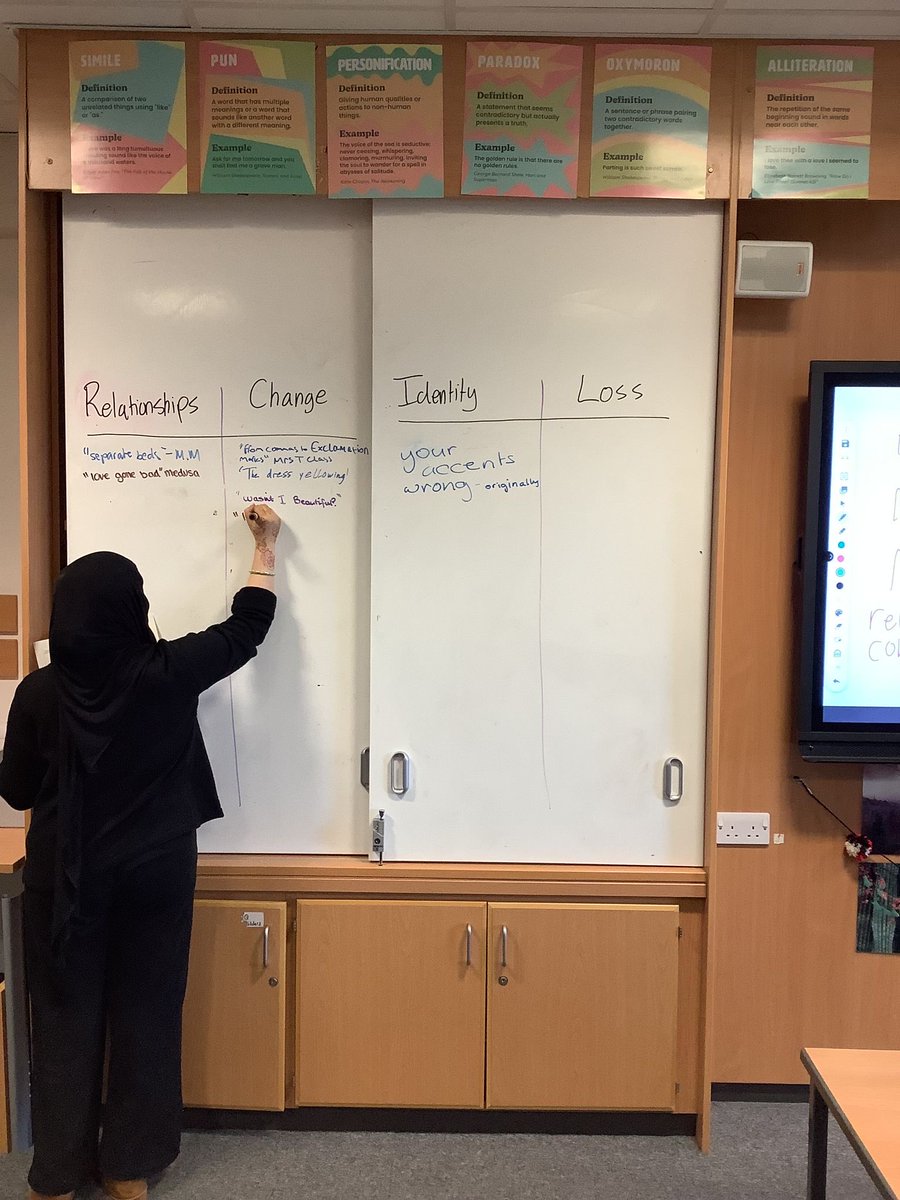 SIMILE
Definition
A comparison of two
unrelated things using "like"
or "as"
Example
PUN
Definition
A word that has multiple
meanings or a word that
sounds like another word
with a different meaning.
Example
Ask for me tomorrow and you
shall find me a grave man.
William Shakespeare, Romeo and Juliet
PERSONIFICATION
Definition
Giving human qualities or
actions to non-human
things.
Example
The voice of the sea is seductive;
never ceasing, whispering,
clamoring, murmuring, inviting
the soul to wander for a spell in
abysses of solitude.
Kate Chopin, The Awakening
PARADOX
Definition
A statement that seems
contradictory but actually
presents a truth.
Example
The golden rule is that there are
no golden rules
George Bernard Shaw, Man and
Superman
OXYMORON
Definition
A sentence or phrase pairing
two contradictory words
together.
Example
Parting is such sweet sorrow.
William Shakespeare, Romeo and Juliet
ALLITERATION
Definition
The repetition of the same
beginning sound in words
near each other.
Example
I love thee with a love I seemed to
lose
Relationships
"separate beds" - M.M
"love gone bad" medusa
Change
"from commas to Exclamation
marks" Mrs T. Class
"The dress yellowing"
"wasnt I Beautiful?"
Identity
your
accents
wrong - originally
Loss